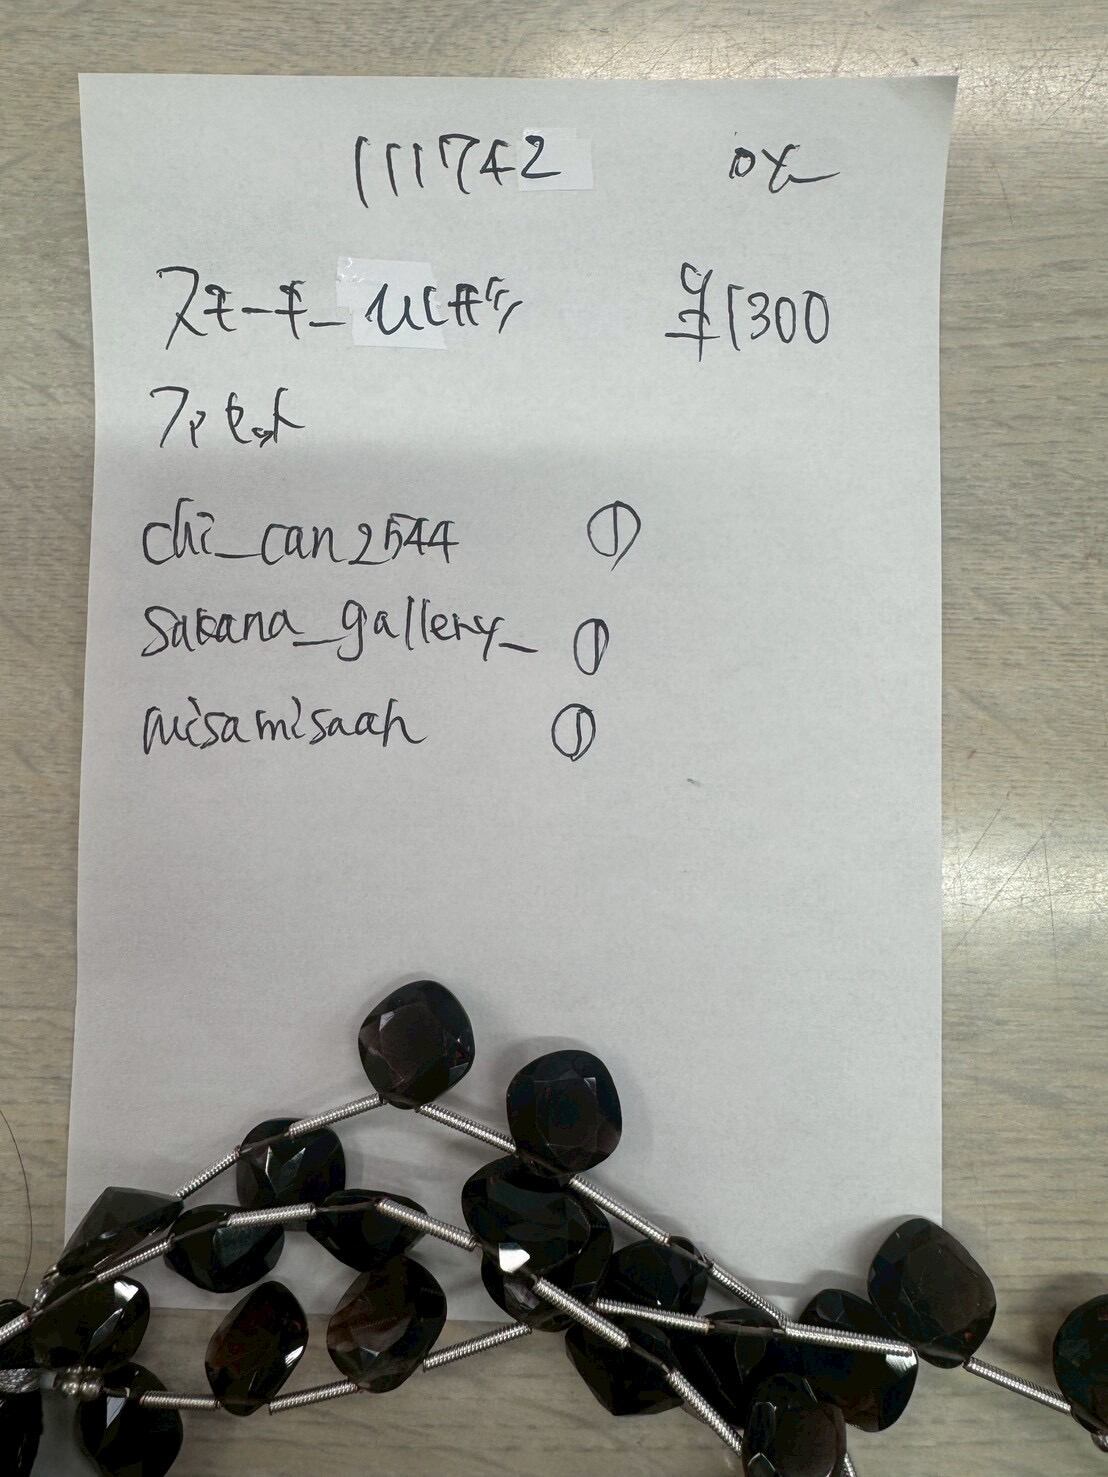 111742
スモーキー ひしガタ ¥1300
ファセット
chi_can2544 ①
sakana_gallery_ ①
misamisaah ①